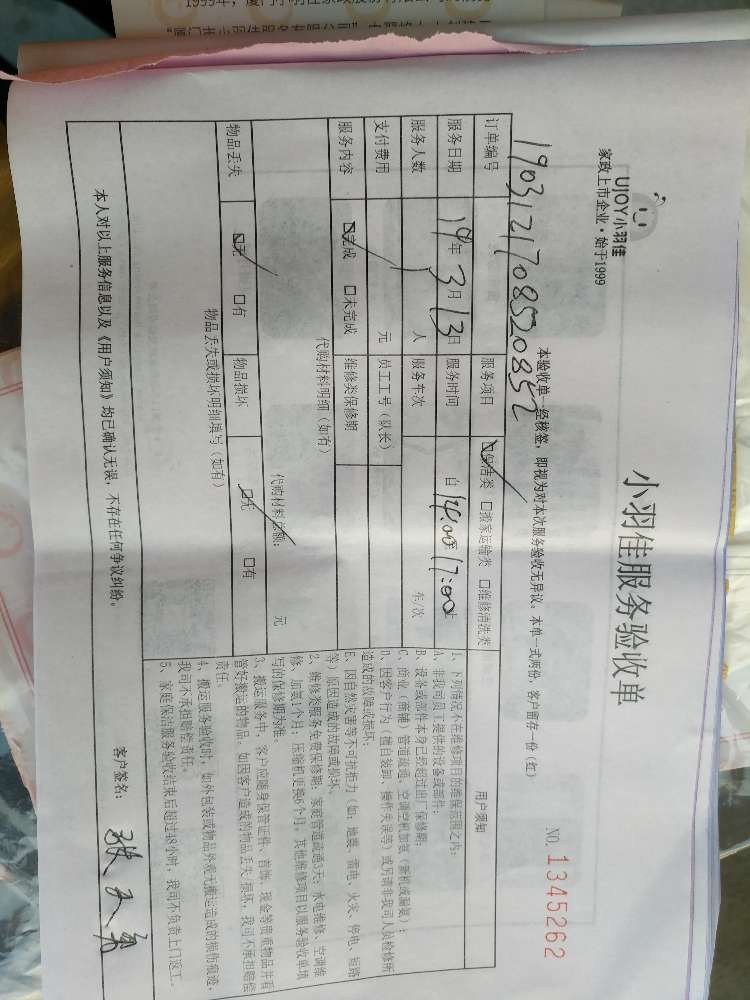 UJOY小羽佳
家政上市企业·始于1999
小羽佳服务验收单
NO. 1345262
本验收单一经核签，即视为对本次服务验收无异议。本单一式两份，客户留存一份（红）
订单编号 190312170852085
服务项目 保洁类 搬家运输类 维修清洗类
服务日期 19年3月13日 服务时间 自14:00至17:00止
服务人数 人 服务车次 车/次
支付费用 元 员工工号（队长）
服务内容 完成 未完成 维修类保修期
代购材料明细（如有）
代购材料总额： 元
物品丢失 无 有 物品损坏 无 有
物品丢失或损坏明细填写（如有）
用户须知
1、下列情况不在维修项目的维保范围之内：
A、非我司员工提供的设备或部件；
B、设备或部件本身已经超过出厂保修期；
C、商业（商铺）管道疏通，空调空机加氨（新机或漏氨）；
D、因客户行为（擅自装卸、操作失误等）或另请非我司人员检修所
造成的故障或损坏；
E、因自然灾害等不可抗拒力（如：地震、雷电、火灾、停电、短路
等）原因造成的故障或损坏。
2、维修类服务免费保修期：家庭管道疏通3天；水电维修、空调维
修、加氨1个月；压缩机更换6个月，其他维修项目以服务验收单填
写的保修期为准。
3、搬运服务中，客户应随身保管证件、首饰、现金等贵重物品并看
管好搬运的物品，如因客户造成的物品丢失损坏，我司不承担赔偿
责任。
4、搬运服务验收时，如外包装或物品外观无搬运造成的损伤痕迹，
我司不承担赔偿责任。
5、家庭保洁服务验收结束后超过48小时，我司不负责上门返工。
本人对以上服务信息以及《用户须知》均已确认无误，不存在任何争议纠纷。
客户签名：